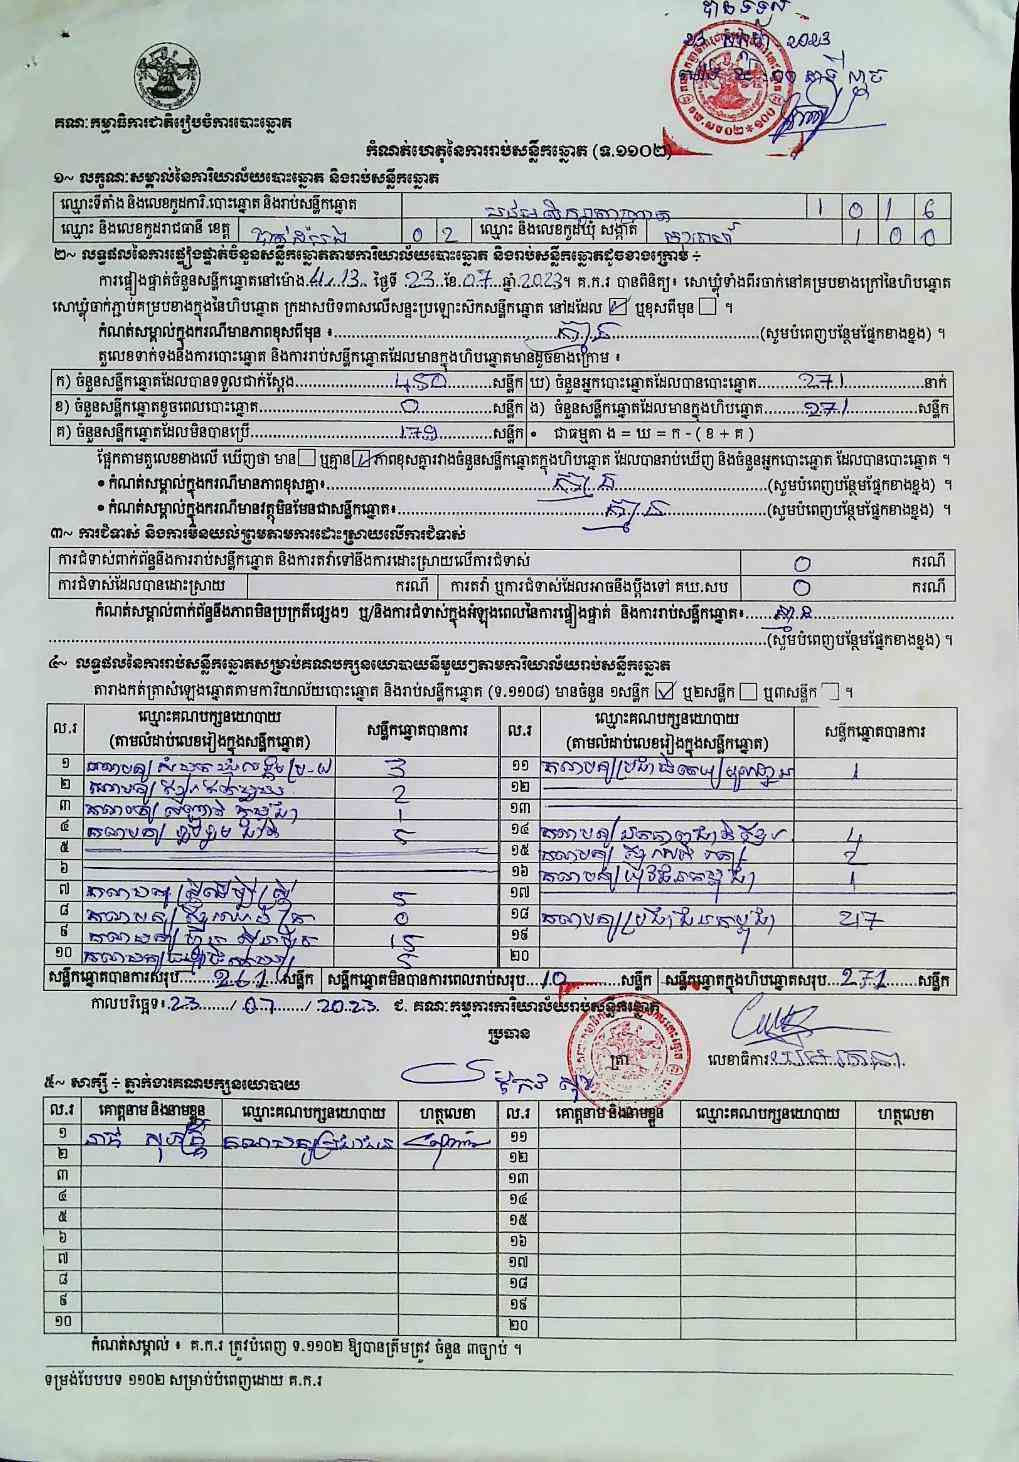 បានទទួល
23 2023
គណៈកម្មាធិការជាតិរៀបចំការបោះឆ្នោត
កំណត់ហេតុនៃការរាប់សន្លឹកឆ្នោត (ទ.១១០២)
១~ លក្ខណៈសម្គាល់នៃការិយាល័យបោះឆ្នោត និងរាប់សន្លឹកឆ្នោត
ឈ្មោះទីតាំង និងលេខកូដការិ.បោះឆ្នោត និងរាប់សន្លឹកឆ្នោត 1 0 1 6
ឈ្មោះ និងលេខកូដរាជធានី ខេត្ត បាត់ដំបង 0 2 ឈ្មោះ និងលេខកូដឃុំ សង្កាត់ 1 0 0
២~ លទ្ធផលនៃការផ្ទៀងផ្ទាត់ចំនួនសន្លឹកឆ្នោតតាមការិយាល័យបោះឆ្នោត និងរាប់សន្លឹកឆ្នោតដូចខាងក្រោម ÷
ការផ្ទៀងផ្ទាត់ចំនួនសន្លឹកឆ្នោតនៅម៉ោង 4:13 ថ្ងៃទី 23 ខែ 07 ឆ្នាំ 2023។ គ.ក.រ បានពិនិត្យ៖ សោឃ្លុំទាំងពីរចាក់នៅគម្របខាងក្រៅនៃហិបឆ្នោត
សោឃ្លុំចាក់ភ្ជាប់គម្របខាងក្នុងនៃហិបឆ្នោត ក្រដាសបិទពាសលើសន្ទះប្រឡោះស៊កសន្លឹកឆ្នោត នៅដដែល ☑ ឬខុសពីមុន ☐ ។
កំណត់សម្គាល់ក្នុងករណីមានភាពខុសពីមុន ៖ គ្មាន (សូមបំពេញបន្ថែមផ្នែកខាងខ្នង) ។
តួលេខទាក់ទងនឹងការបោះឆ្នោត និងការរាប់សន្លឹកឆ្នោតដែលមានក្នុងហិបឆ្នោតមានដូចខាងក្រោម ៖
ក) ចំនួនសន្លឹកឆ្នោតដែលបានទទួលជាក់ស្តែង 450 សន្លឹក ឃ) ចំនួនអ្នកបោះឆ្នោតដែលបានបោះឆ្នោត 271 នាក់
ខ) ចំនួនសន្លឹកឆ្នោតខូចពេលបោះឆ្នោត 0 សន្លឹក ង) ចំនួនសន្លឹកឆ្នោតដែលមានក្នុងហិបឆ្នោត 271 សន្លឹក
គ) ចំនួនសន្លឹកឆ្នោតដែលមិនបានប្រើ 179 សន្លឹក • ជាធម្មតា ង = ឃ = ក - ( ខ + គ )
ផ្អែកតាមតួលេខខាងលើ ឃើញថា មាន ☐ ឬគ្មាន ☑ ភាពខុសគ្នារវាងចំនួនសន្លឹកឆ្នោតក្នុងហិបឆ្នោត ដែលបានរាប់ឃើញ និងចំនួនអ្នកបោះឆ្នោត ដែលបានបោះឆ្នោត ។
• កំណត់សម្គាល់ក្នុងករណីមានភាពខុសគ្នា៖ គ្មាន (សូមបំពេញបន្ថែមផ្នែកខាងខ្នង) ។
• កំណត់សម្គាល់ក្នុងករណីមានវត្ថុមិនមែនជាសន្លឹកឆ្នោត៖ គ្មាន (សូមបំពេញបន្ថែមផ្នែកខាងខ្នង) ។
៣~ ការជំទាស់ និងការមិនយល់ព្រមតាមការដោះស្រាយលើការជំទាស់
ការជំទាស់ពាក់ព័ន្ធនឹងការរាប់សន្លឹកឆ្នោត និងការតវ៉ាទៅនឹងការដោះស្រាយលើការជំទាស់ 0 ករណី
ការជំទាស់ដែលបានដោះស្រាយ ករណី ការតវ៉ា ឬការជំទាស់ដែលអាចនឹងប្តឹងទៅ គឃ.សប 0 ករណី
កំណត់សម្គាល់ពាក់ព័ន្ធនឹងភាពមិនប្រក្រតីផ្សេងៗ ឬ/និងការជំទាស់ក្នុងអំឡុងពេលនៃការផ្ទៀងផ្ទាត់ និងការរាប់សន្លឹកឆ្នោត៖ គ្មាន
(សូមបំពេញបន្ថែមផ្នែកខាងខ្នង) ។
៤~ លទ្ធផលនៃការរាប់សន្លឹកឆ្នោតសម្រាប់គណបក្សនយោបាយនីមួយៗតាមការិយាល័យរាប់សន្លឹកឆ្នោត
តារាងកត់ត្រាសំឡេងឆ្នោតតាមការិយាល័យបោះឆ្នោត និងរាប់សន្លឹកឆ្នោត (ទ.១១០៨) មានចំនួន ១សន្លឹក ☑ ឬ២សន្លឹក ☐ ឬ៣សន្លឹក ☐ ។
ល.រ ឈ្មោះគណបក្សនយោបាយ (តាមលំដាប់លេខរៀងក្នុងសន្លឹកឆ្នោត) សន្លឹកឆ្នោតបានការ ល.រ ឈ្មោះគណបក្សនយោបាយ (តាមលំដាប់លេខរៀងក្នុងសន្លឹកឆ្នោត) សន្លឹកឆ្នោតបានការ
១ គណបក្ស 3 ១១ គណបក្ស 1
២ គណបក្ស 2 ១២
៣ គណបក្ស 1 ១៣
៤ គណបក្ស 5 ១៤ គណបក្ស 4
៥ ១៥ គណបក្ស 2
៦ ១៦ គណបក្ស 1
៧ គណបក្ស ដើម្បី 5 ១៧
៨ គណបក្ស 0 ១៨ គណបក្ស ប្រជាជនកម្ពុជា 217
៩ គណបក្ស 15 ១៩
១០ គណបក្ស 5 ២០
សន្លឹកឆ្នោតបានការសរុប 261 សន្លឹក សន្លឹកឆ្នោតមិនបានការពេលរាប់សរុប 10 សន្លឹក សន្លឹកឆ្នោតក្នុងហិបឆ្នោតសរុប 271 សន្លឹក
កាលបរិច្ឆេទ៖ 23 / 07 / 2023 ជ. គណៈកម្មការការិយាល័យរាប់សន្លឹកឆ្នោត
ប្រធាន
ត្រា លេខាធិការ
៥~ សាក្សី ÷ ភ្នាក់ងារគណបក្សនយោបាយ
ល.រ គោត្តនាម និងនាមខ្លួន ឈ្មោះគណបក្សនយោបាយ ហត្ថលេខា ល.រ គោត្តនាម និងនាមខ្លួន ឈ្មោះគណបក្សនយោបាយ ហត្ថលេខា
១ គណបក្សប្រជាជន ១១
២ ១២
៣ ១៣
៤ ១៤
៥ ១៥
៦ ១៦
៧ ១៧
៨ ១៨
៩ ១៩
១០ ២០
កំណត់សម្គាល់ ៖ គ.ក.រ ត្រូវបំពេញ ទ.១១០២ ឱ្យបានត្រឹមត្រូវ ចំនួន ៣ច្បាប់ ។
ទម្រង់បែបបទ ១១០២ សម្រាប់បំពេញដោយ គ.ក.រ